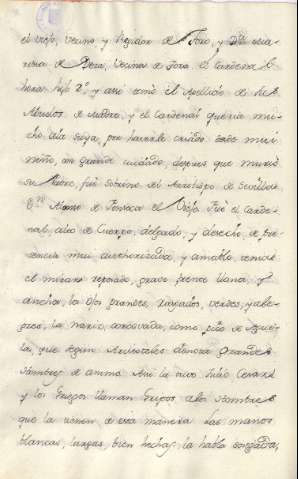 el viejo, Vecino y Regidor de Toro, y Dª Ma-
ria de Ulloa, Vecina de Toro. el Cardenal
hera su hijo 2º, y assi tomó el Apellido de sus
Abuelos de Madre, y el Cardenal queria mu-
cho a la suya, por haverle criado, desde mui
niño, con grande cuidado, despues que murió
su Padre, fué sobrino del Arzobispo de Sevilla
Dn Alonso de Fonseca el Viejo. Fué el Carde-
nal, alto de Cuerpo, delgado, y derecho de pre-
sencia mui authorizada, y amable, rostro
el mirar reposado, grave frente llana, y
ancha, los Ojos grandes, rasgados, verdes, y ale-
gres, la nariz, arcovada, como pico de Agui-
la, que segun Aristoteles denota grandes
hombres de animo. Assi la tuvo Julio Cesar
y los Griegos llaman Gripos a los hombres
que la tienen de esta manera. Las manos
blancas, largas, bien hechas, la habla sosegada,